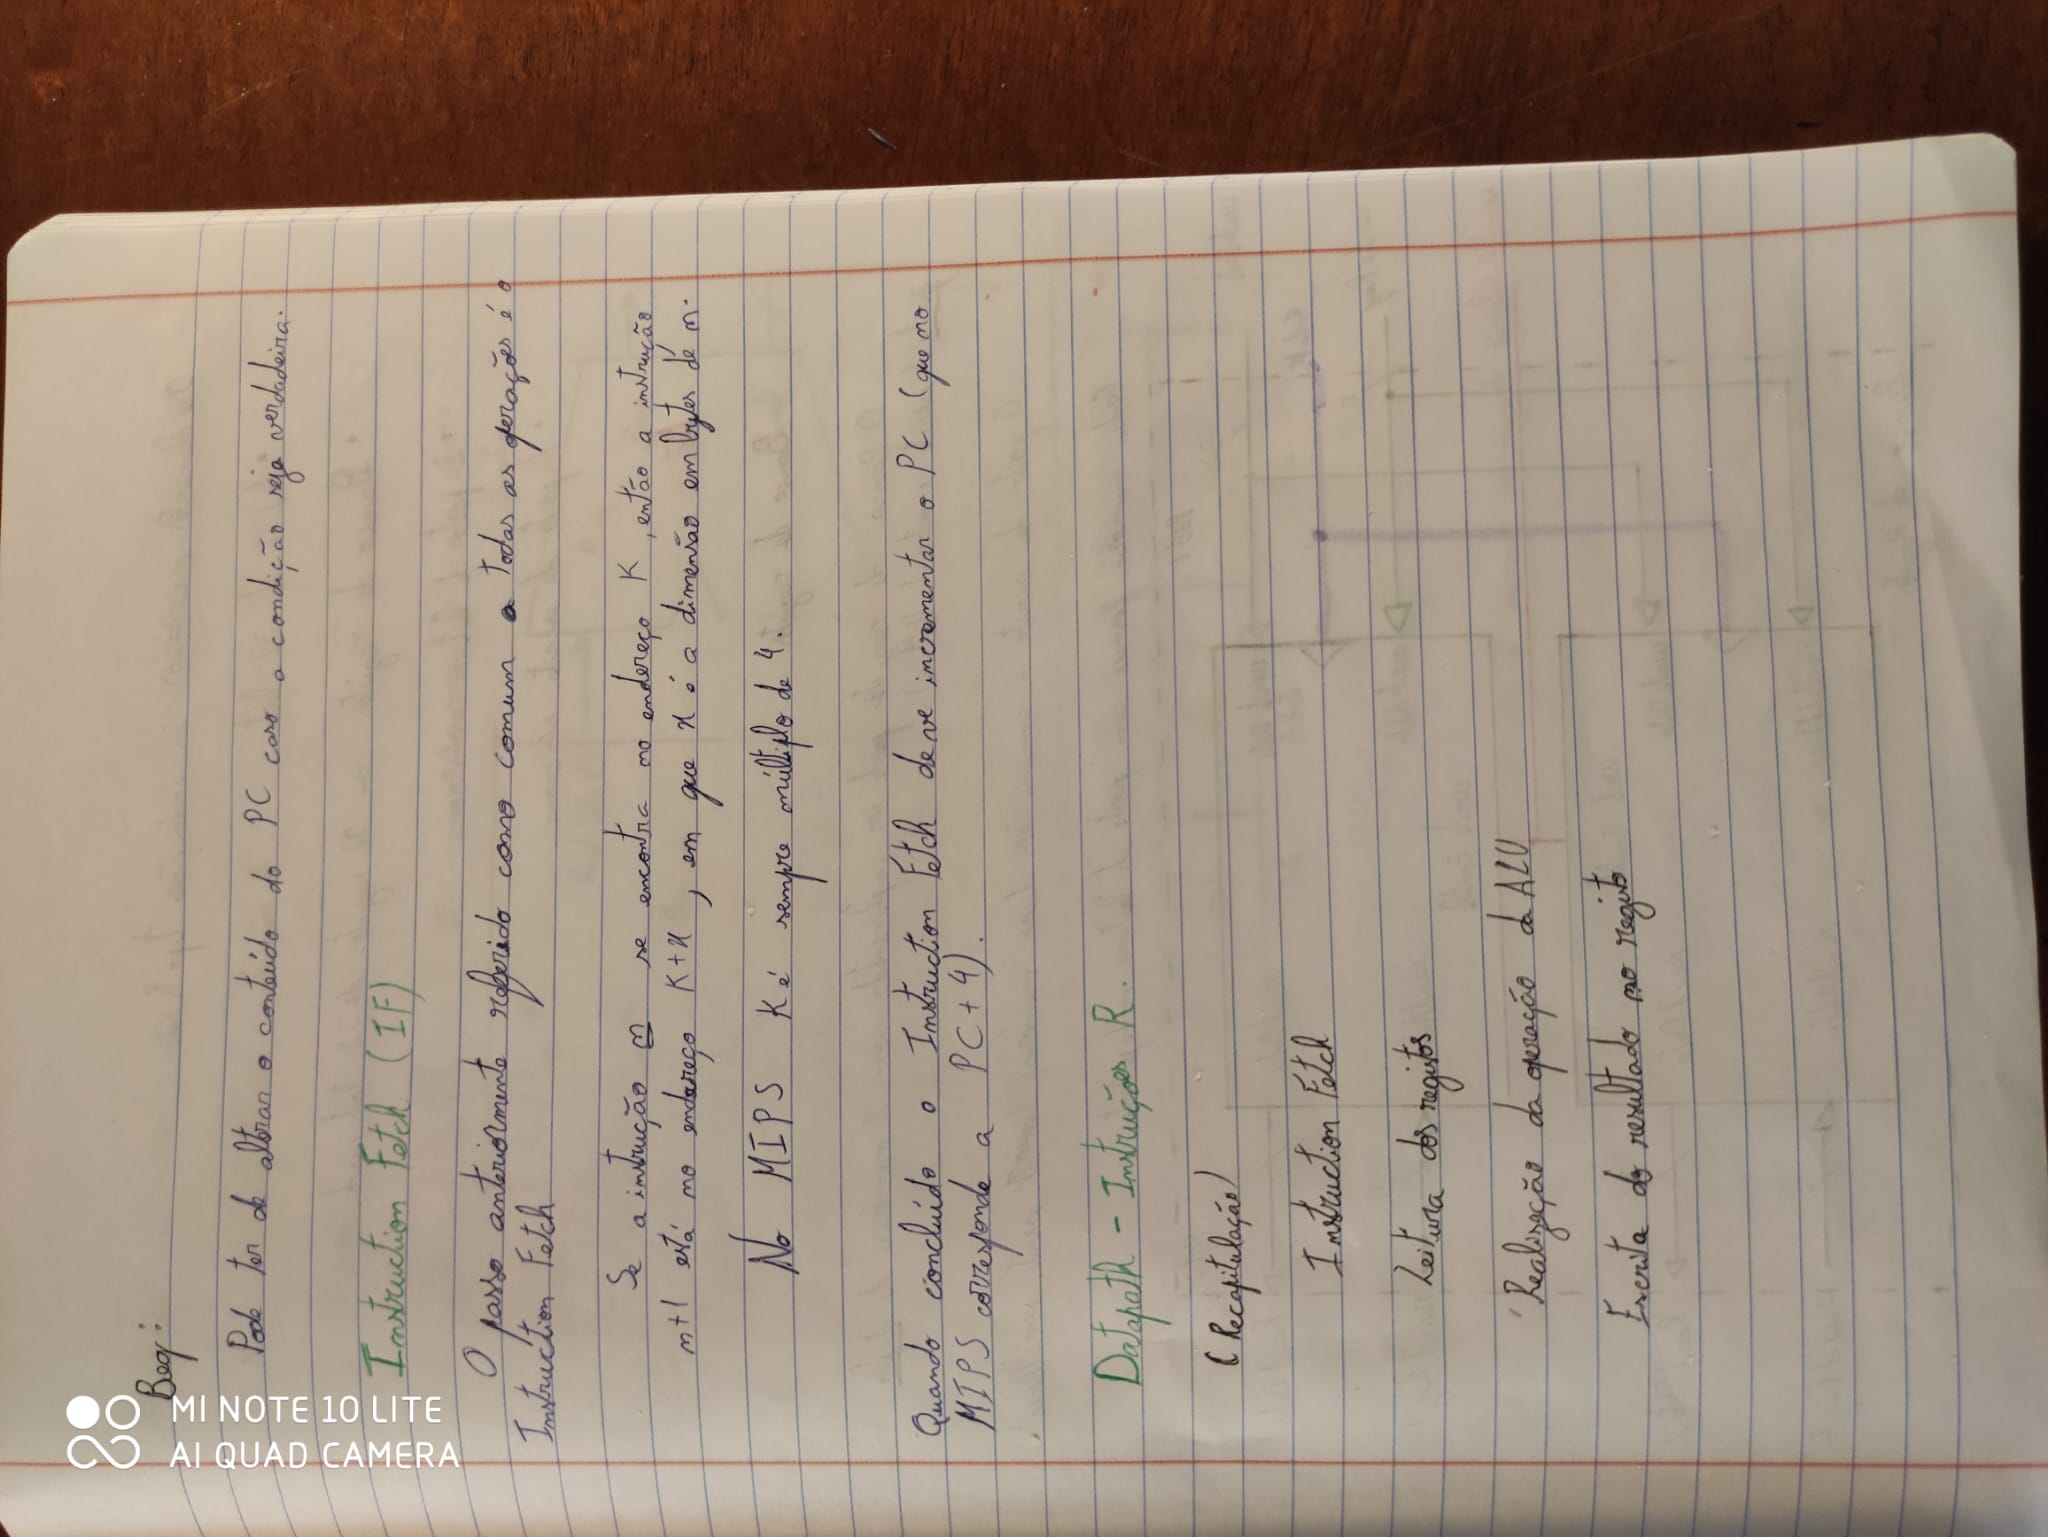 Beq:
Pode ter de alterar o conteúdo do PC caso a condição seja verdadeira.
Instruction Fetch (IF)
O passo anteriormente referido como comum a todas as operações é o
Instruction Fetch
Se a instrução n se encontra no endereço K, então a instrução
n+1 está no endereço K+x, em que x é a dimensão em bytes de n.
No MIPS K é sempre múltiplo de 4.
Quando concluído o Instruction Fetch deve incrementar o PC (que no
MIPS corresponde a PC+4).
Datapath - Instruções R.
(Recapitulação)
Instruction Fetch
Leitura dos registos
Realização da operação da ALU
Escrita do resultado no registo
MI NOTE 10 LITE
AI QUAD CAMERA